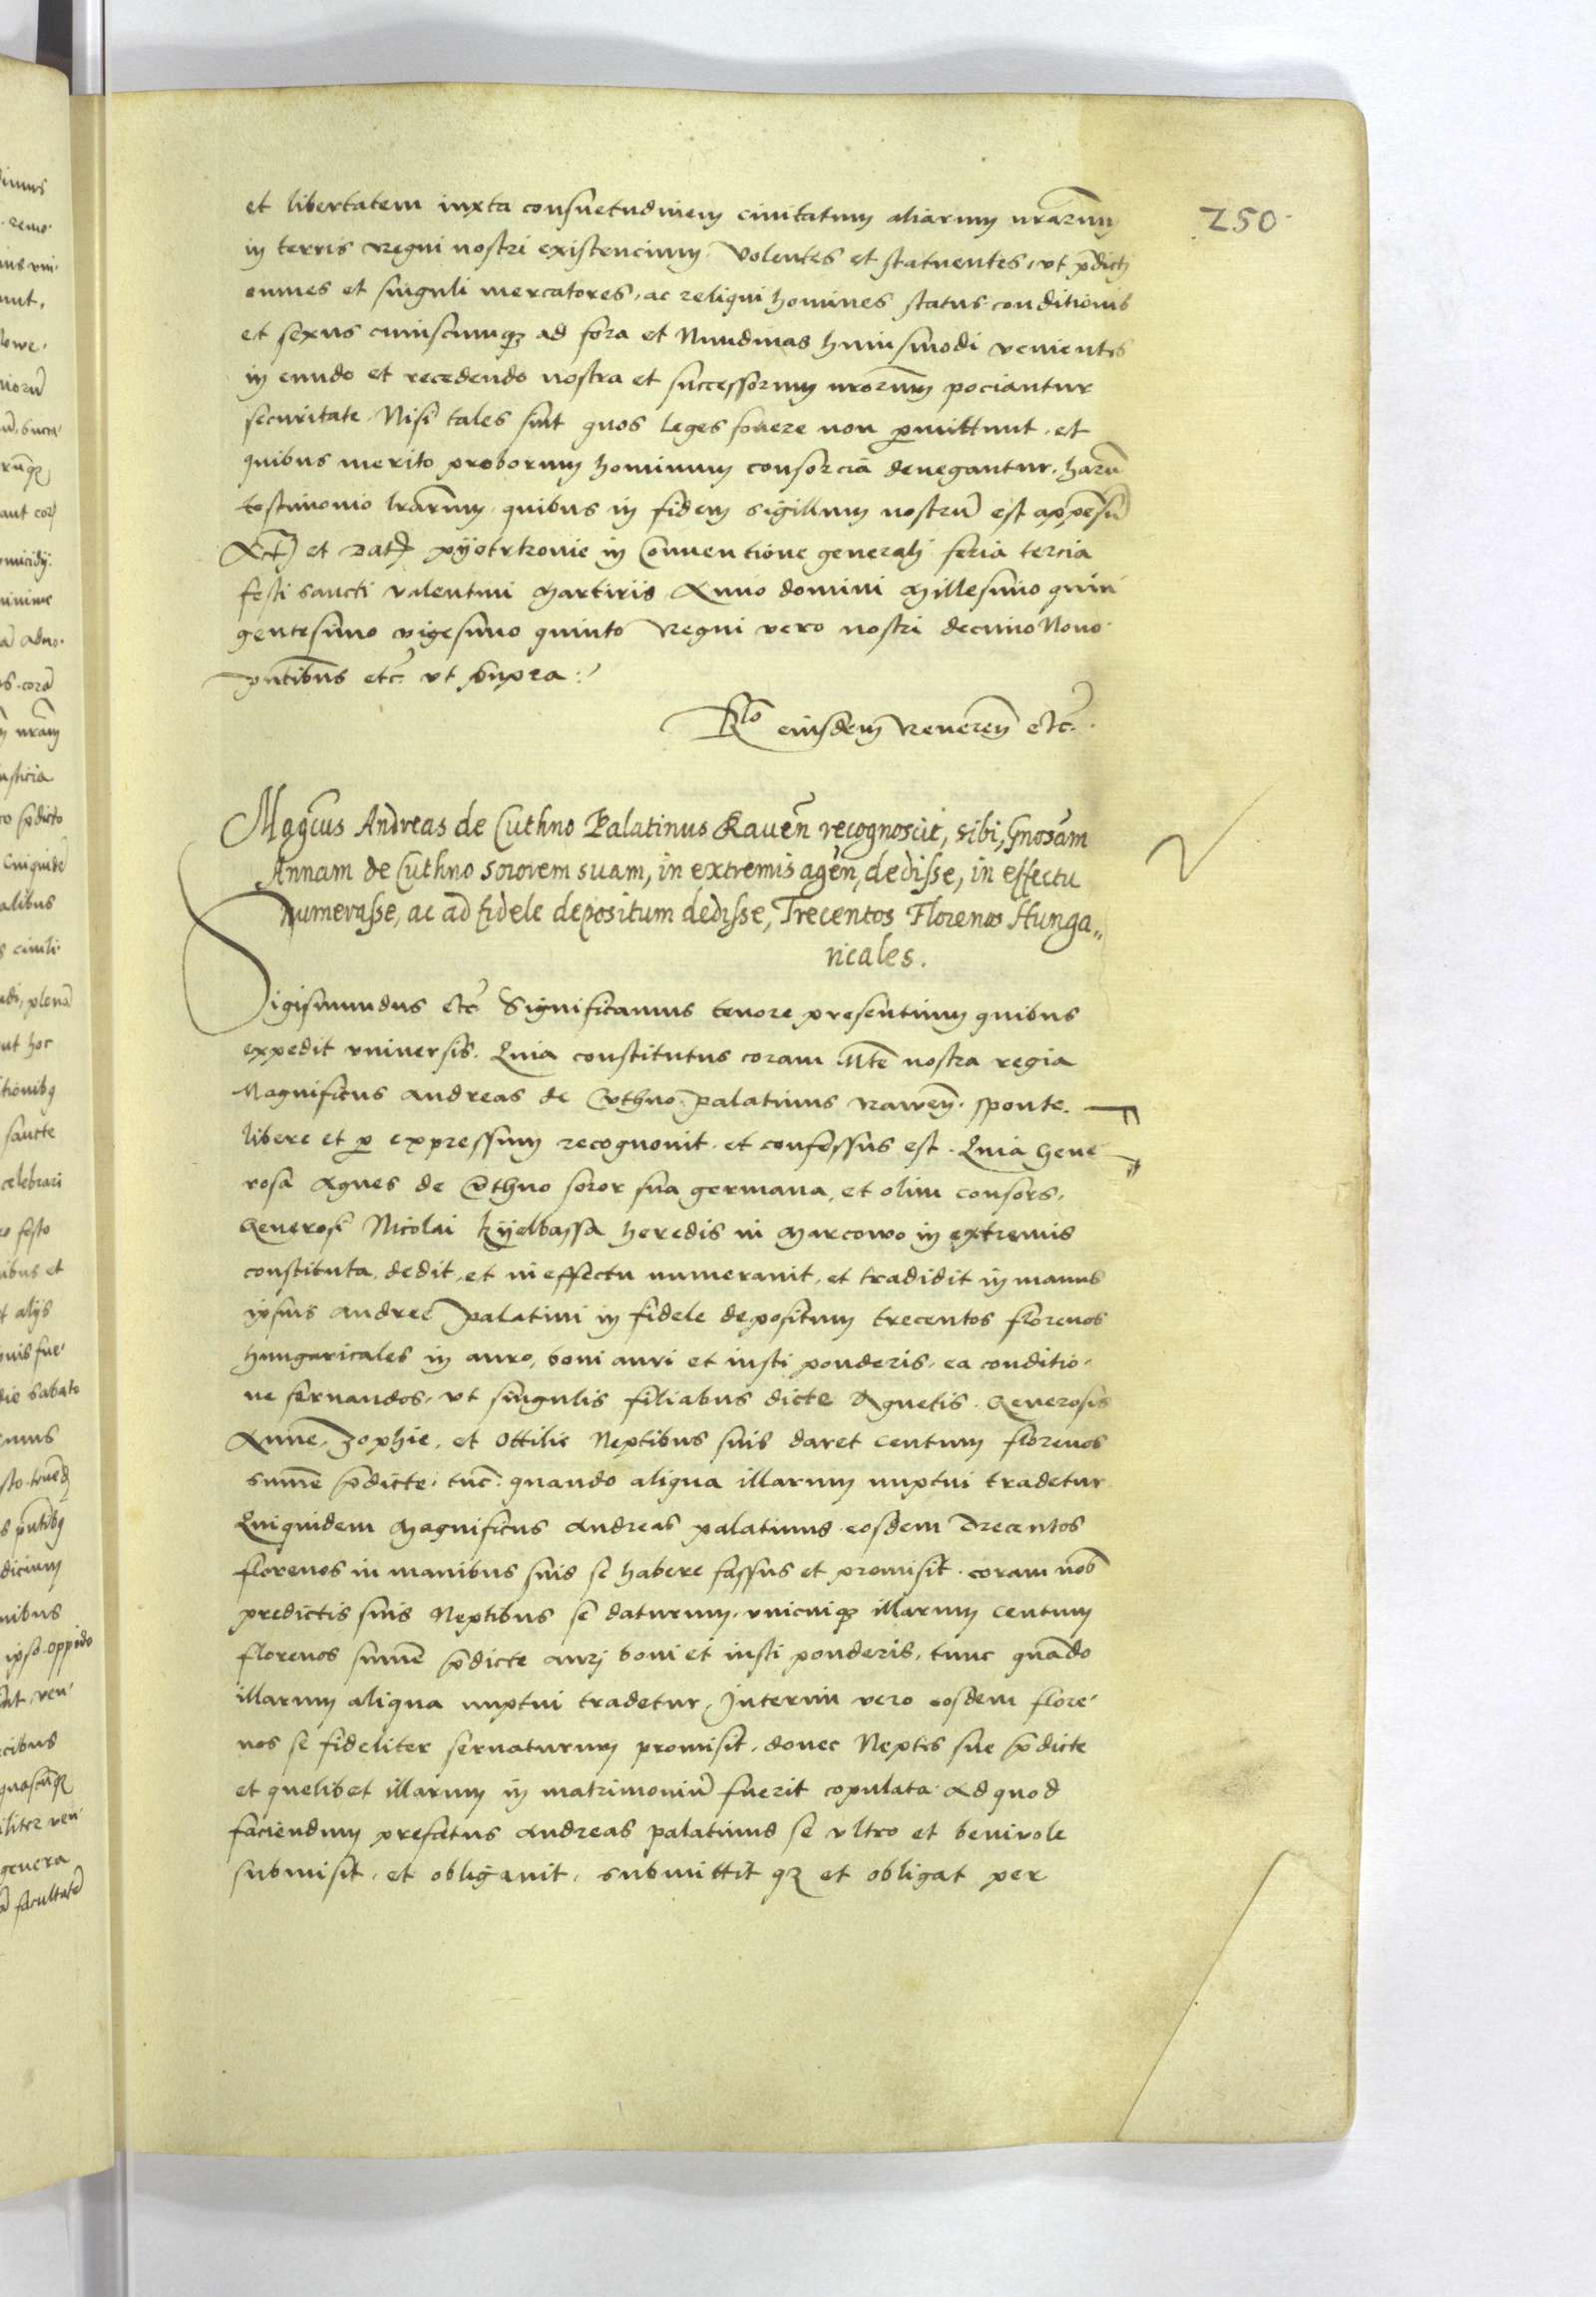 250
et libertatem iuxta consuetudinem civitatum aliarum nr̃arum
in terris Regni nostri existencium. Volentes et statuentes, ut p̃dicti
omnes et singuli mercatores, ac reliqui homines status conditionis
et sexus cuiuscumqȝ ad fora et Nundinas huiusmodi venientes
in eundo et recedendo nostra et successorum nr̃orum pociantur
securitate. Nisi tales sint quos Leges fovere non p̱mittunt, et
quibus merito proborum hominum consorcia denegantur. harũ
testimonio lr̃arum, quibus in fidem sigillum nostrũ est appensũ
Act̃ et Dat̃ Pyotrkovie in Conventione generali feria tercia
festi sancti Valentini Martiris Anno domini Millesimo quin
gentesimo vigesimo quinto Regni vero nostri decimo Nono
p̃ntibus etc̃ ut supra:
Rlo eiusdem Reveren̄ etc̃.
Magc̃us Andreas de Cuthno Palatinus Raven̄ recognoscit, sibi, Gnosam̃
Annam de Cuthno sororem suam, in extremis agen̄, dedisse, in effectu
numerasse, ac ad fidele depositum dedisse, Trecentos Florenos Hunga„
ricales.
Sigismundus etc̃ Significamus tenore presentium quibus
expedit universis. Quia constitutus coram Mte nostra regia
Magnificus Andreas de Cuthno palatinus Raven̄. sponte.
libere et p̱ expressum recognovit et confessus est. Quia Gene
rosa Agnes de Cuthno soror sua germana, et olim consors,
Generosi Nicolai Kyelbassa heredis in Marcowo in extremis
constituta, dedit, et in effectu numeravit, et tradidit in manus
ipsius Andree palatini in fidele depositum trecentos florenos
hungaricales in auro, boni auri et iusti ponderis, ea conditio,
ne servandos, ut singulis filiabus dicte Agnetis. Generosis
Anne, Zophie, et Ottilie Neptibus suis daret centum florenos
sum̃e p̃dicte, tũc quando aliqua illarum nuptui tradetur
Quiquidem Magnificus Andreas palatinus eosdem Trecentos
florenos in manibus suis se habere fassus et promisit coram nob̃
predictis suis Neptibus se daturum, unicuiqȝ illarum centum
florenos sum̃e p̃dicte auri boni et iusti ponderis, tunc quãdo
illarum aliqua nuptui tradetur, Interim vero eosdem flore,
nos se fideliter servaturum promisit, donec Neptis sue p̃dicte
et quelibet illarum in matrimoniũ fuerit copulata. Ad quod
faciendum prefatus Andreas palatinus se ultro et benivole
submisit, et obligavit, submittit qȝ et obligat per